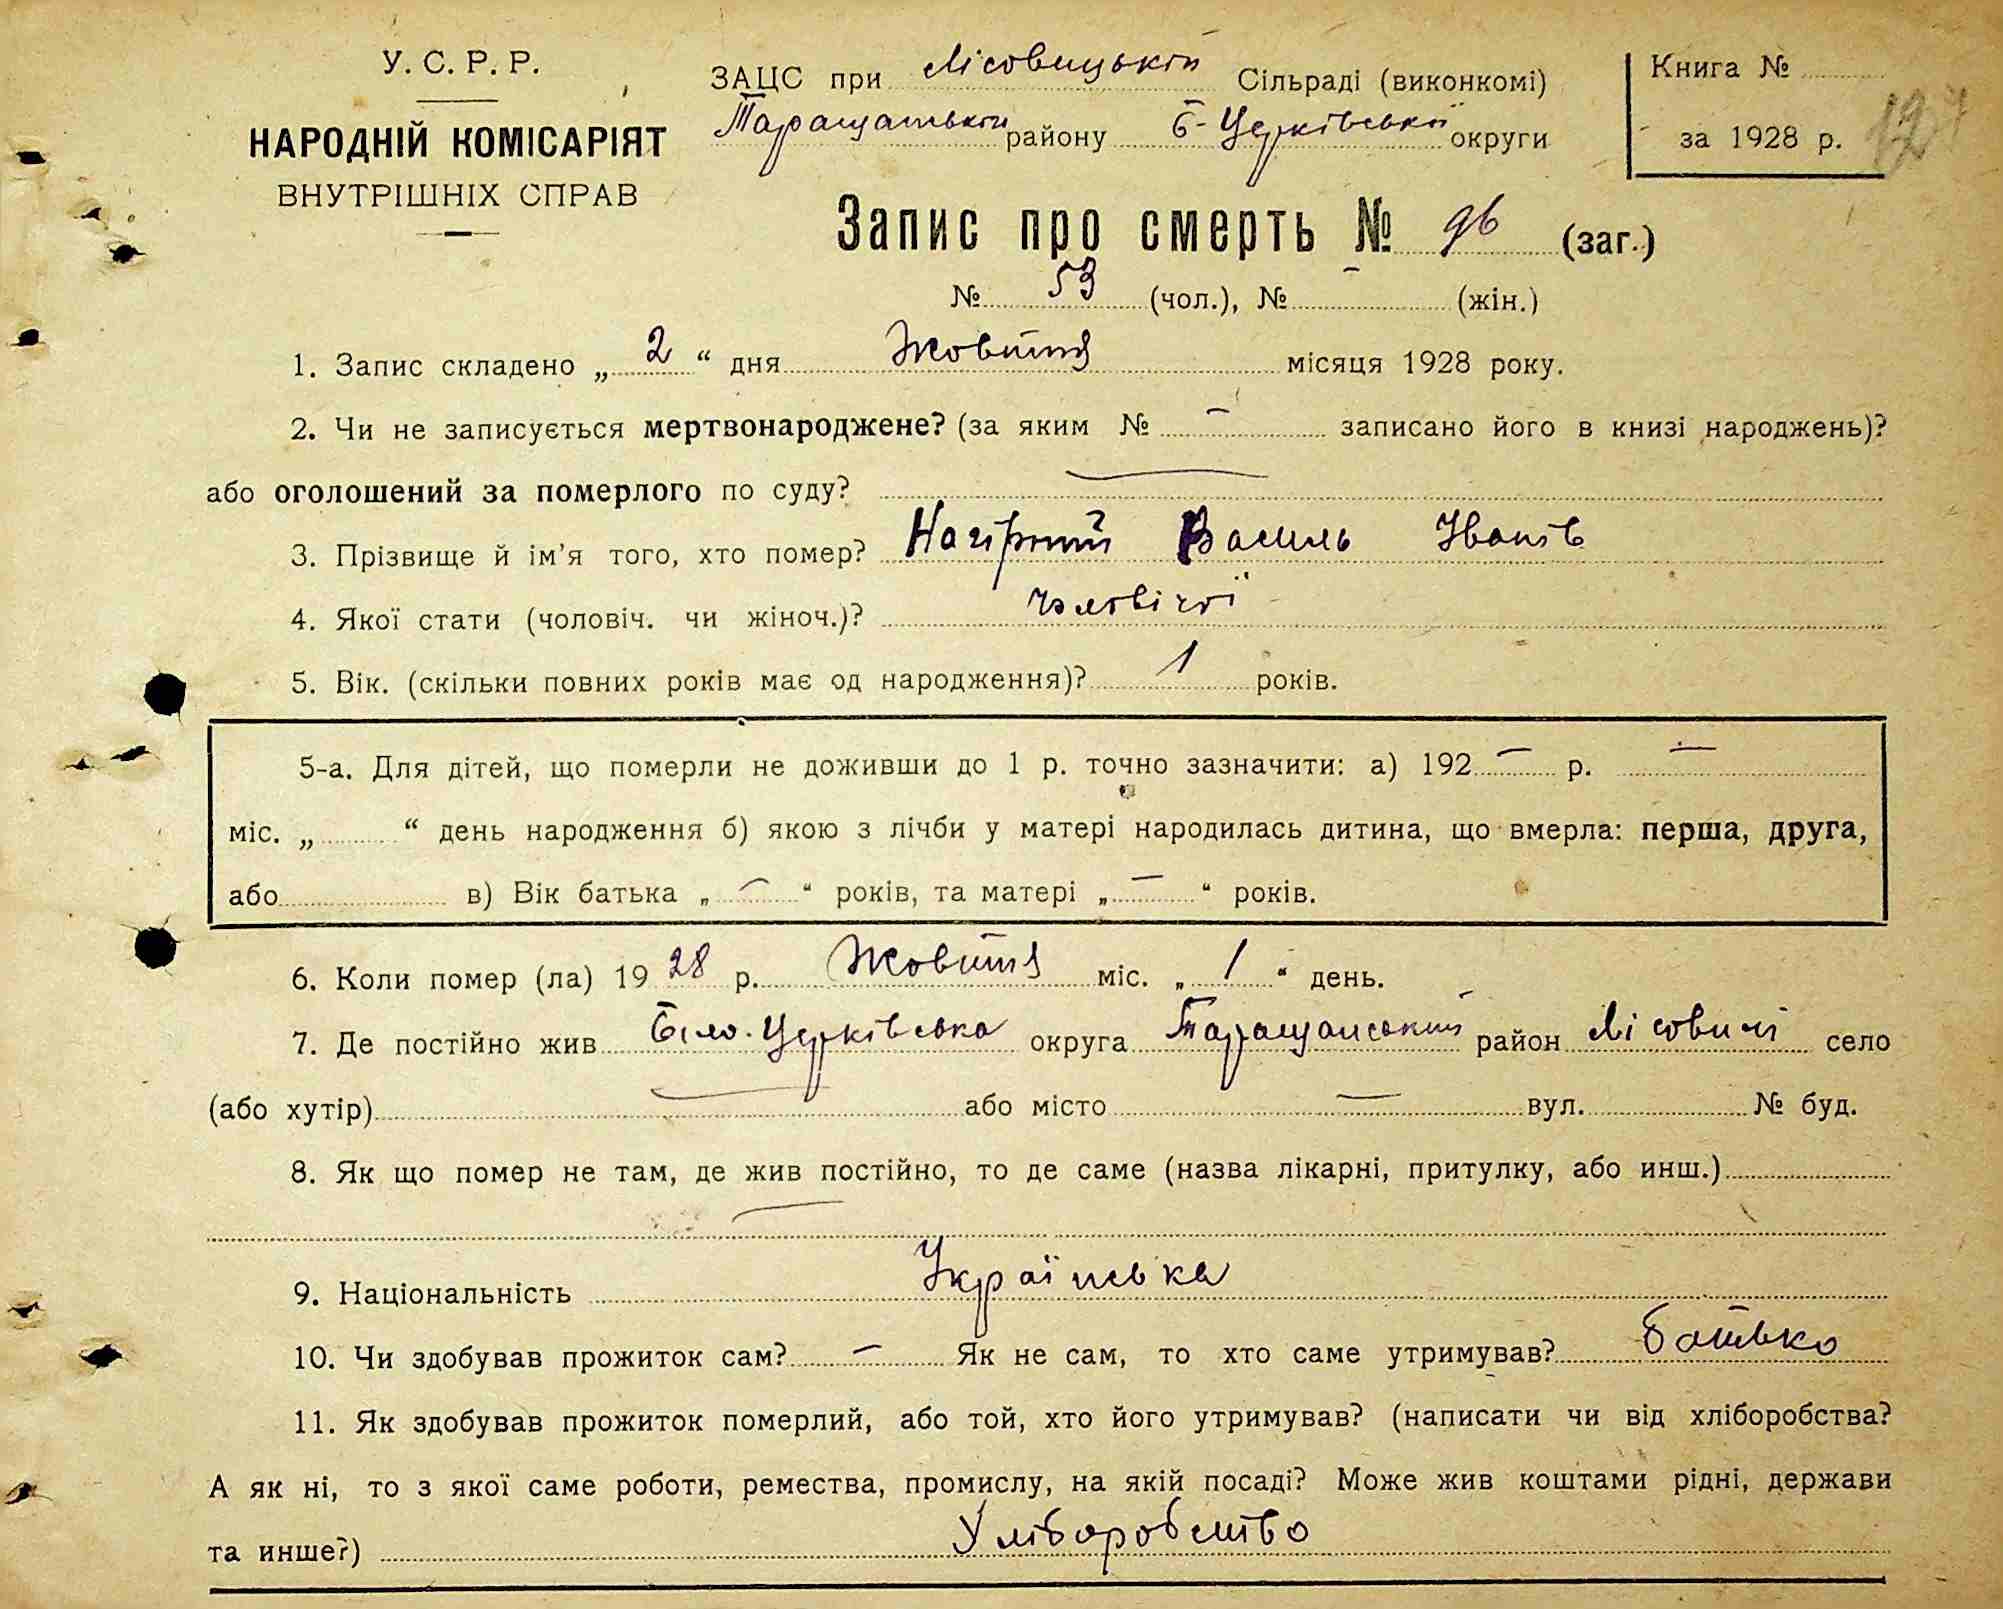 У. С. Р. Р.
НАРОДНІЙ КОМІСАРІЯТ
ВНУТРІШНІХ СПРАВ
ЗАЦС при Лісовицькій Сільраді (виконкомі)
Таращанськ району Б-Церківської округи
Книга №
за 1928 р.
Запис про смерть № 96 (заг.)
№ 53 (чол.), № - (жін.)
1. Запис складено „ 2 “ дня Жовтня місяця 1928 року.
2. Чи не записується мертвонароджене? (за яким № - записано його в книзі народжень)?
або оголошений за померлого по суду? —
3. Прізвище й ім'я того, хто помер? Нагірний Василь Іванів
4. Якої стати (чоловіч. чи жіноч.)? чоловічої
5. Вік. (скільки повних років має од народження)? 1 років.
5-а. Для дітей, що померли не доживши до 1 р. точно зазначити: а) 192 — р. —
міс. „ “ день народження б) якою з лічби у матері народилась дитина, що вмерла: перша, друга,
або в) Вік батька „ — “ років, та матері „ — “ років.
6. Коли помер (ла) 19 28 р. Жовтня міс. „ 1 “ день.
7. Де постійно жив Біло-Церківська округа Таращанський район Лісовичі село
(або хутір) — або місто — вул. № буд.
8. Як що помер не там, де жив постійно, то де саме (назва лікарні, притулку, або инш.)
—
9. Національність Українська
10. Чи здобував прожиток сам? — Як не сам, то хто саме утримував? батько
11. Як здобував прожиток померлий, або той, хто його утримував? (написати чи від хліборобства?
А як ні, то з якої саме роботи, ремества, промислу, на якій посаді? Може жив коштами рідні, держави
та инше?) Хліборобство